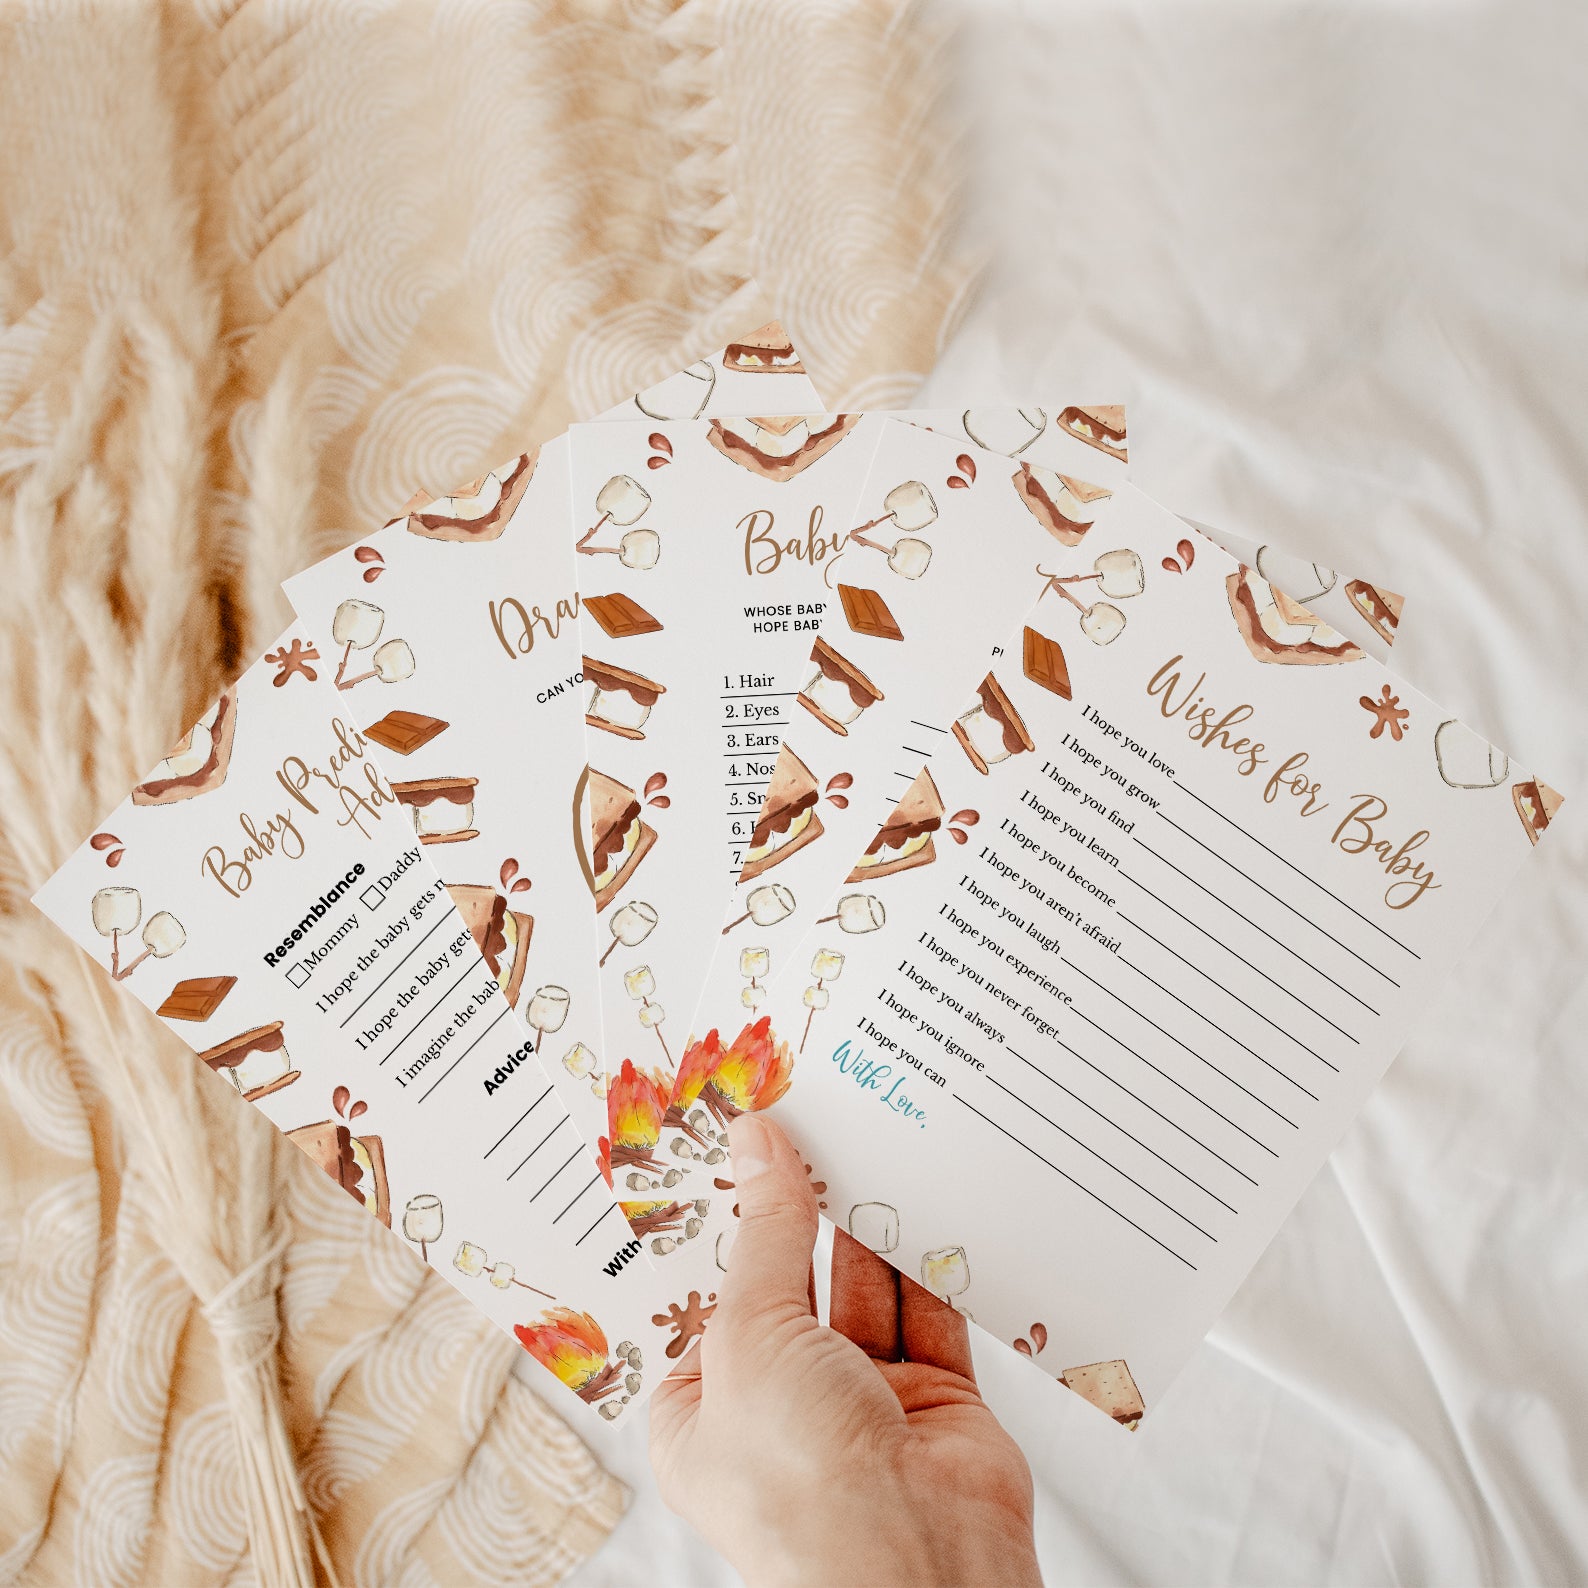 Baby
Resemblance
Mommy Daddy
I hope the baby gets
I hope the baby gets
I imagine the
Advice
With
CAN
Baby
WHOSE
HOPE
1. Hair
2. Eyes
3. Ears
4.
5.
6.
7.
Wishes for Baby
I hope you love
I hope you grow
I hope you find
I hope you learn
I hope you become
I hope you aren't afraid
I hope you laugh
I hope you experience
I hope you never forget
I hope you always
I hope you ignore
I hope you can
With Love,